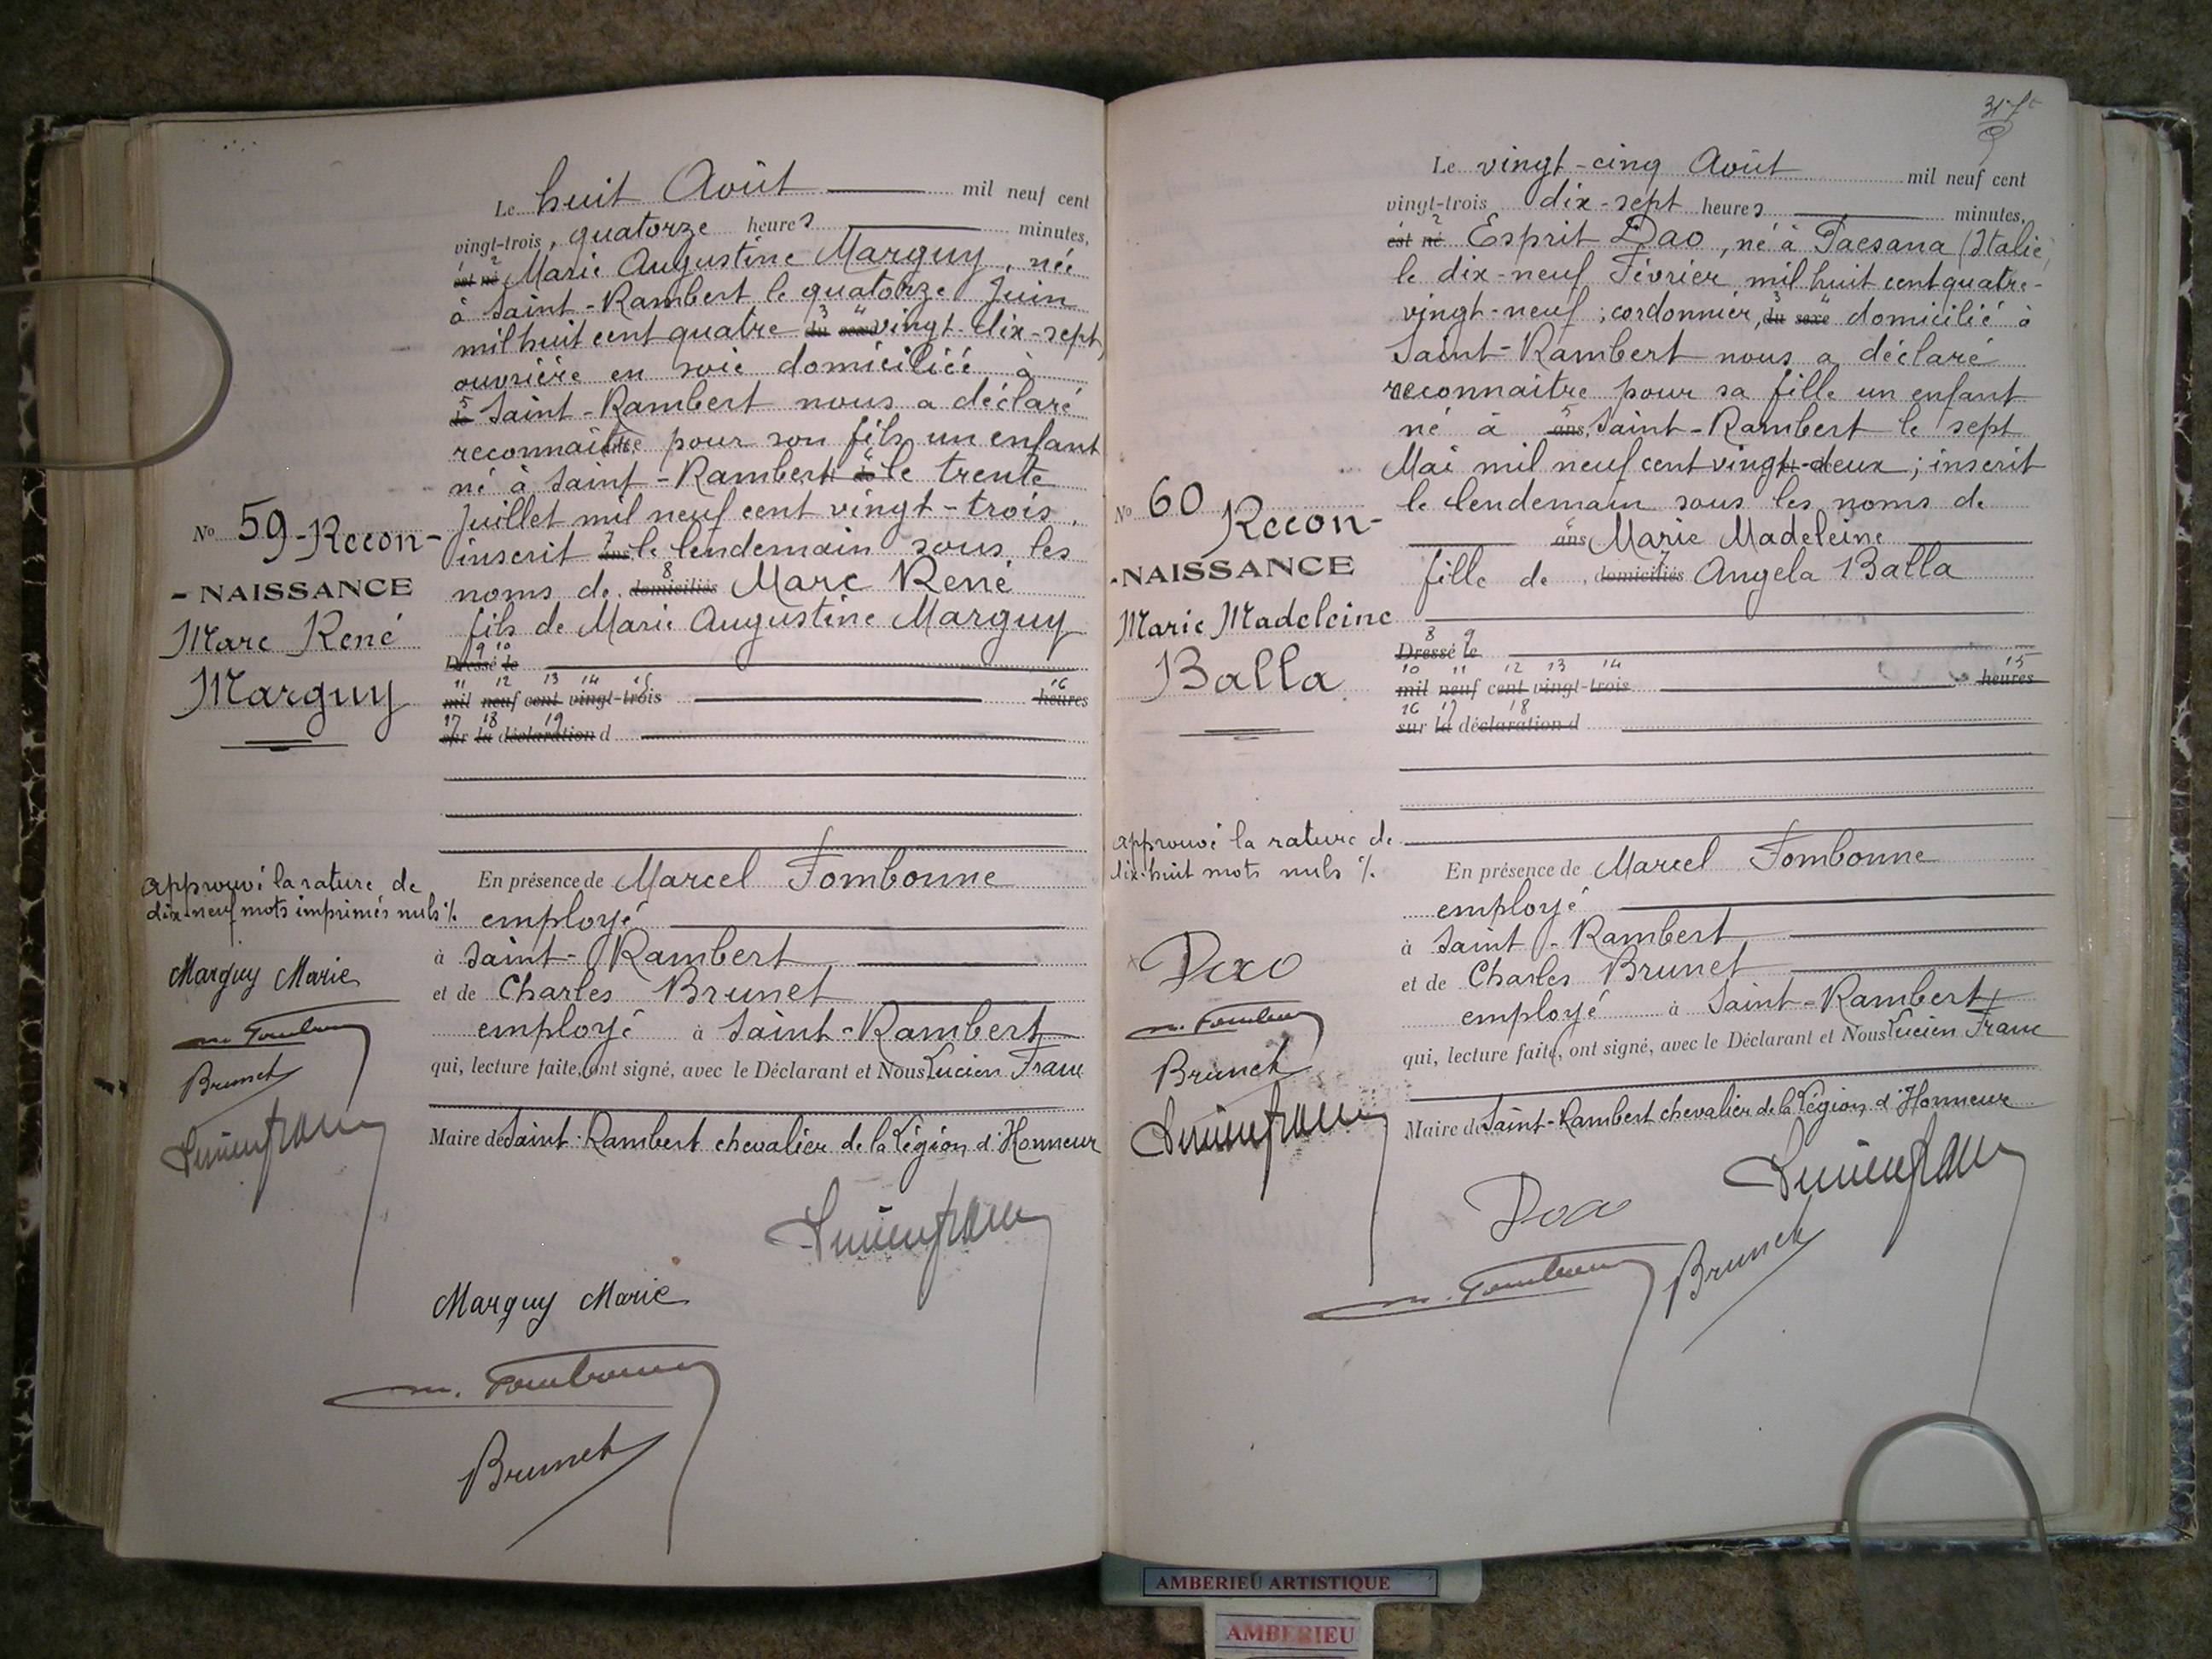 Le huit Août mil neuf cent
vingt-trois, quatorze heures minutes,
est né Marie Augustine Marguy, née
à Saint-Rambert le quatorze Juin
mil huit cent quatre du sexe vingt-dix-sept,
ouvrière en soie domiciliée à
de Saint-Rambert nous a déclaré
reconnaitre pour son fils un enfant
né à Saint-Rambert le trente
Juillet mil neuf cent vingt-trois,
inscrit le lendemain sous les
noms de domiciliés Marc René
fils de Marie Augustine Marguy
Dressé le
mil neuf cent vingt-trois heures
sur la déclaration d
No 59 - Recon-
- NAISSANCE
Marc René
Marguy
Approuvé la rature de
dix-neuf mots imprimés nuls %.
Marguy Marie
m. Fombonne
Brunet
Lucien franc
En présence de Marcel Fombonne
employé
à Saint-Rambert
et de Charles Brunet
employé à Saint-Rambert
qui, lecture faite, ont signé, avec le Déclarant et Nous Lucien Franc
Maire de Saint-Rambert chevalier de la Légion d'Honneur
Lucien franc
Marguy Marie
m. Fombonne
Brunet
31
Le vingt-cinq Août mil neuf cent
vingt-trois dix-sept heures minutes,
est né Esprit Dao, né à Paesana (Italie)
le dix-neuf Février mil huit cent quatre-
vingt-neuf, cordonnier, du sexe domicilié à
Saint-Rambert nous a déclaré
reconnaitre pour sa fille un enfant
né à ans, Saint-Rambert le sept
Mai mil neuf cent vingt-deux; inscrit
le lendemain sous les noms de
ans Marie Madeleine
fille de domiciliés Angela Balla
Dressé le
mil neuf cent vingt-trois heures
sur la déclaration d
No 60 Recon-
-NAISSANCE
Marie Madeleine
Balla
Approuvé la rature de
dix-huit mots nuls %.
Dao
m. Fombonne
Brunet
Lucien franc
En présence de Marcel Fombonne
employé
à Saint-Rambert
et de Charles Brunet
employé à Saint-Rambert
qui, lecture faite, ont signé, avec le Déclarant et Nous Lucien Franc
Maire de Saint-Rambert chevalier de la Légion d'Honneur
Lucien franc
Dao
m. Fombonne
Brunet
AMBERIEU ARTISTIQUE
AMBERIEU